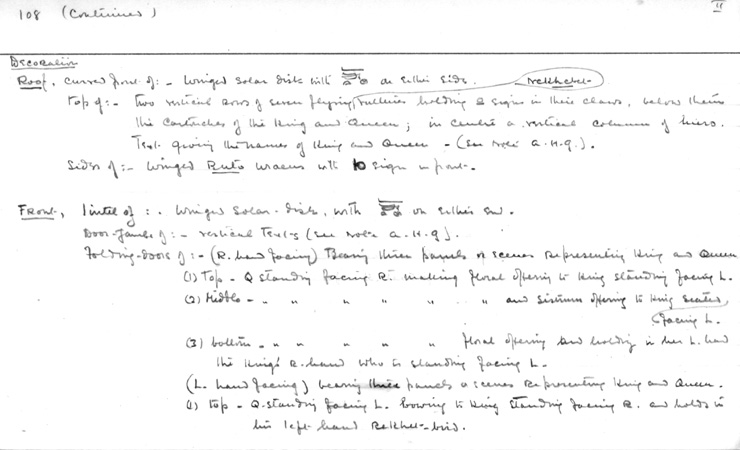 108 (Continued)
II
Decoration
Roof, curved front of:- Winged Solar disk with on either side.
Nekhebet-
top of:- Two vertical rows of seven flying vultures holding Q signs in their claws, below them
the cartouches of the King and Queen; in centre a vertical column of hiero.
Text giving the names of King and Queen - (see note A.H.G.).
Sides of:- Winged Buto uraeus with sign in front.
Front, lintel of:. Winged Solar-disk, with on either side.
Door-Jambs of:- vertical Texts (see note A.H.G).
Folding-doors of:- (R. hand facing) Bearing three panels or scenes Representing King and Queen
(1) Top - Q standing facing R. making floral offering to King standing facing L.
(2) Middle - " " " " " " and Sistrum offering to King seated
facing L.
(3) bottom - " " " " " floral offering and holding in her L. hand
the King's R. hand who is standing facing L.
(L. hand facing) bearing three panels or scenes Representing King and Queen.
(1) top - Q. standing facing L. bowing to King standing facing R. and holds in
his left hand Rekhet-bird.